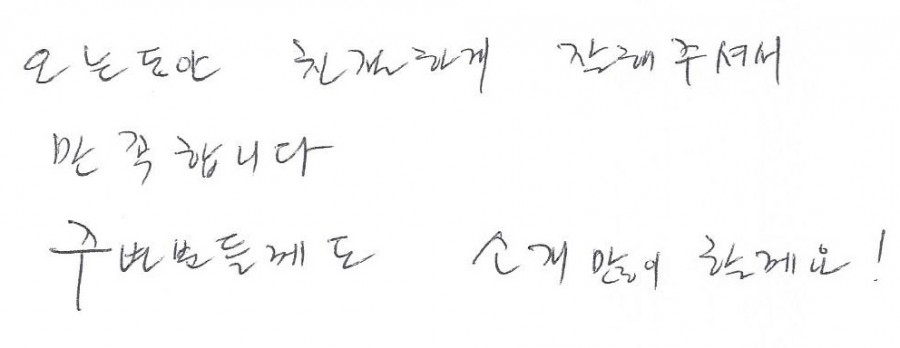 오는도안 친절하게 잘해주셔서
만족합니다
주변분들께도 소개 많이 할게요!